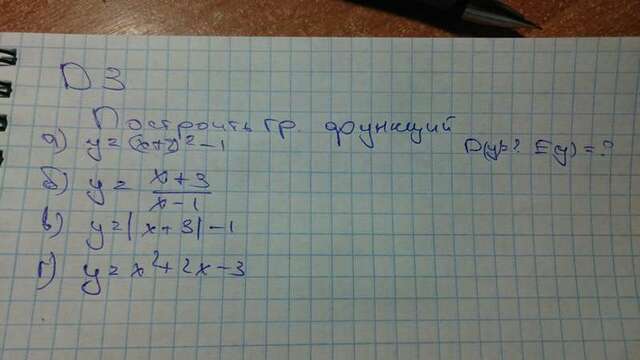 ДЗ
Построить гр. функций
D(y)? E(y)=?
а) y=(x+2)²-1
б) y = \frac{x+3}{x-1}
в) y=|x+3|-1
г) y=x²+2x-3